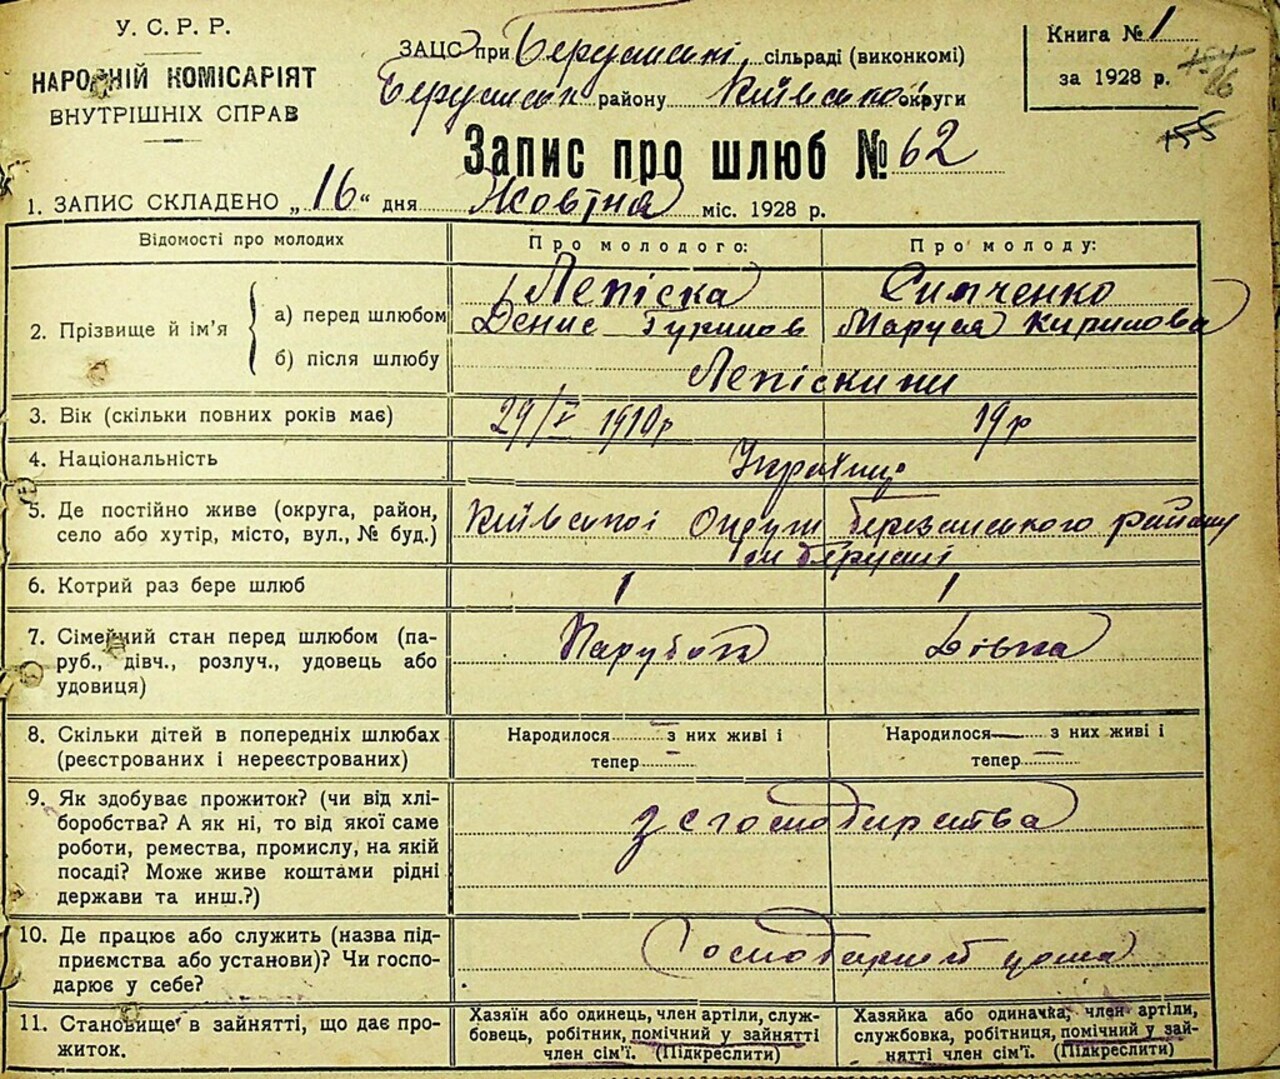 У. С. Р. Р.
НАРОДНІЙ КОМІСАРІЯТ
ВНУТРІШНІХ СПРАВ
ЗАЦС при сільраді (виконкомі)
району Київської округи
Книга № 1
за 1928 р.
155
Запис про шлюб № 62
1. ЗАПИС СКЛАДЕНО „16“ дня Жовтня міс. 1928 р.
Відомості про молодих
Про молодого:
Про молоду:
2. Прізвище й ім'я
а) перед шлюбом
б) після шлюбу
Лепіска
Денис
Симченко
Маруся Кирилова
Лепіскини
3. Вік (скільки повних років має)
29/V 1910р
19р
4. Національність
Українці
5. Де постійно живе (округа, район,
село або хутір, місто, вул., № буд.)
Київської Округи Березанського району
6. Котрий раз бере шлюб
1
1
7. Сімейний стан перед шлюбом (па-
руб., дівч., розлуч., удовець або
удовиця)
Парубок
Дівка
8. Скільки дітей в попередніх шлюбах
(реєстрованих і нереєстрованих)
Народилося — з них живі і
тепер —
Народилося — з них живі і
тепер —
9. Як здобуває прожиток? (чи від хлі-
боробства? А як ні, то від якої саме
роботи, ремества, промислу, на якій
посаді? Може живе коштами рідні
держави та инш.?)
з господарства
10. Де працює або служить (назва під-
приємства або установи)? Чи госпо-
дарює у себе?
11. Становище в зайнятті, що дає про-
житок.
Хазяїн або одинець, член артіли, служ-
бовець, робітник, помічний у зайнятті
член сім'ї. (Підкреслити)
Хазяйка або одиначка, член артіли,
службовка, робітниця, помічний у зай-
нятті член сім'ї. (Підкреслити)